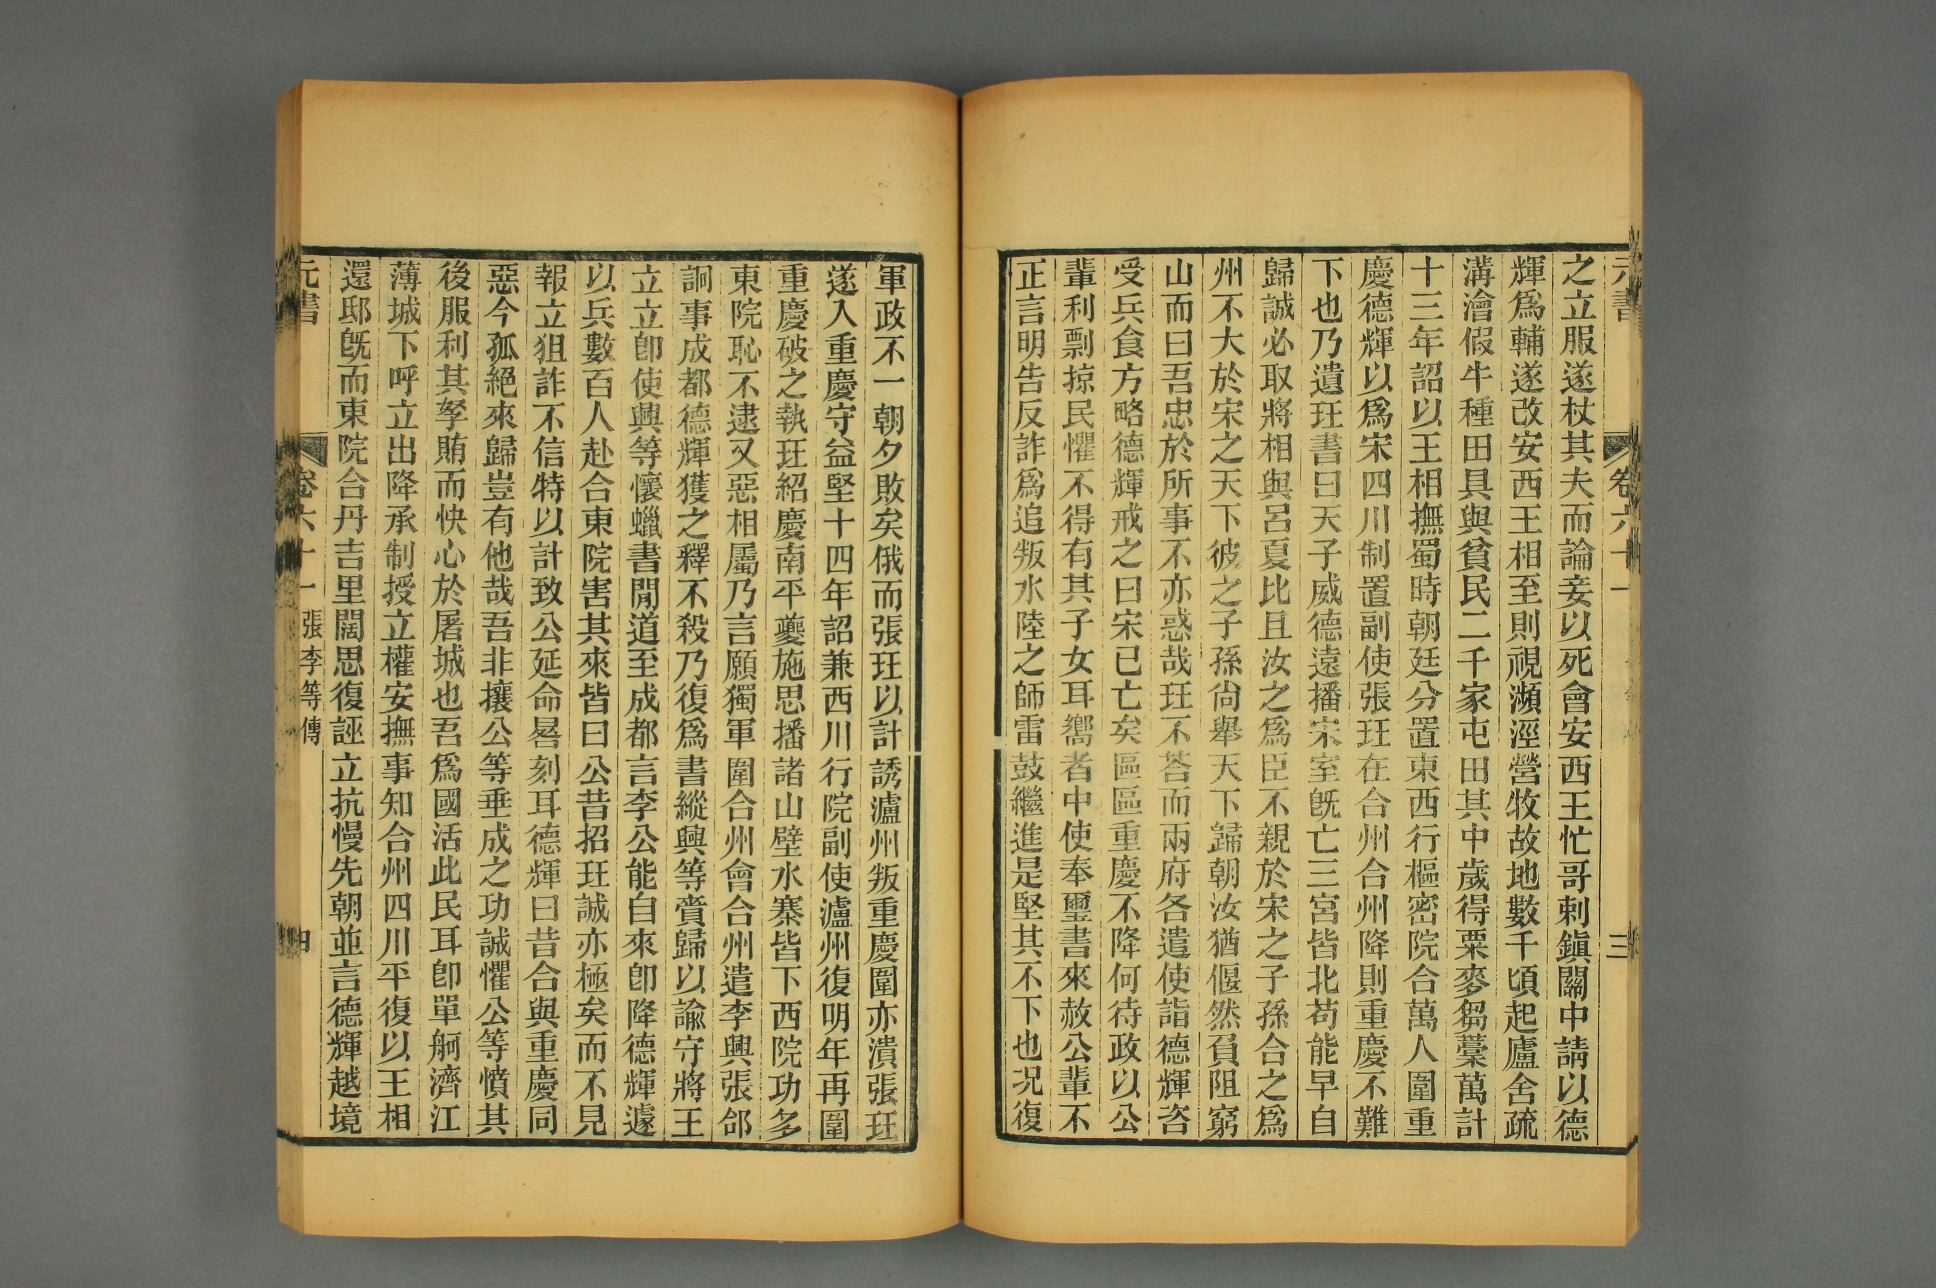 元書
卷六十一
三
之立服遂杖其夫而論妾以死會安西王忙哥剌鎭關中請以德
輝爲輔遂改安西王相至則視瀕涇營牧故地數千頃起廬舍疏
溝澮假牛種田具與貧民二千家屯田其中歲得粟麥芻藁萬計
十三年詔以王相撫蜀時朝廷分置東西行樞密院合萬人圍重
慶德輝以爲宋四川制置副使張玨在合州合州降則重慶不難
下也乃遺玨書曰天子威德遠播宋室旣亡三宮皆北苟能早自
歸誠必取將相與呂夏比且汝之爲臣不親於宋之子孫合之爲
州不大於宋之天下彼之子孫尙舉天下歸朝汝猶偃然負阻窮
山而曰吾忠於所事不亦惑哉玨不荅而兩府各遣使詣德輝咨
受兵食方略德輝戒之曰宋已亡矣區區重慶不降何待政以公
輩利剽掠民懼不得有其子女耳嚮者中使奉璽書來赦公輩不
正言明告反詐爲追叛水陸之師雷鼓繼進是堅其不下也况復
軍政不一朝夕敗矣俄而張玨以計誘瀘州叛重慶圍亦潰張玨
遂入重慶守益堅十四年詔兼西川行院副使瀘州復明年再圍
重慶破之執玨紹慶南平夔施思播諸山壁水寨皆下西院功多
東院恥不逮又惡相屬乃言願獨軍圍合州會合州遣李興張郃
詗事成都德輝獲之釋不殺乃復爲書縱興等賫歸以諭守將王
立立卽使興等懷蠟書閒道至成都言李公能自來卽降德輝遽
以兵數百人赴合東院害其來皆曰公昔招玨誠亦極矣而不見
報立狙詐不信特以計致公延命晷刻耳德輝曰昔合與重慶同
惡今孤絕來歸豈有他哉吾非攘公等垂成之功誠懼公等憤其
後服利其孥賄而快心於屠城也吾爲國活此民耳卽單舸濟江
薄城下呼立出降承制授立權安撫事知合州四川平復以王相
還邸旣而東院合丹吉里闊思復誣立抗慢先朝並言德輝越境
元書
卷六十一
張李等傳
四